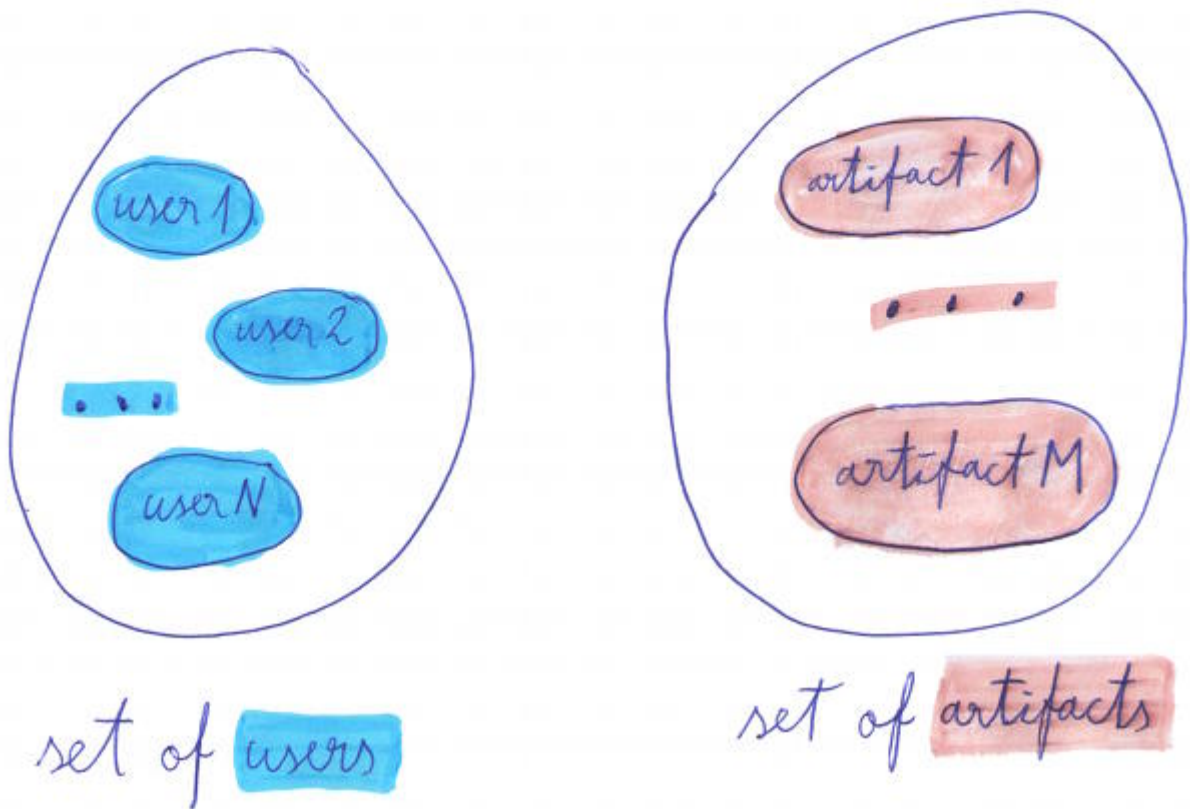 user 1
user 2
...
user N
set of users
artifact 1
...
artifact M
set of artifacts